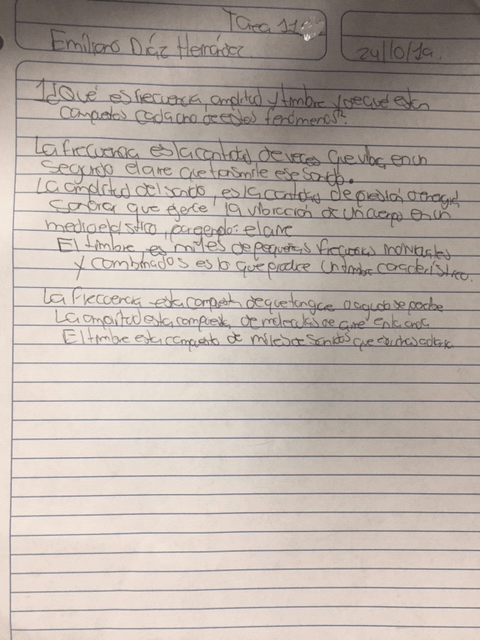 Tarea 11
Emiliano Díaz Hernández
24/10/19
1¿Qué es frecuencia, amplitud y timbre y de que estan
compuestos cada uno de estos fenómenos?
La frecuencia es la cantidad de veces que vibra en un
segundo el aire que transmite ese sonido.
La amplitud del sonido, es la cantidad de presión o energia
sonora que ejerce la vibración de un cuerpo en un
medio elástico, por ejemplo: el aire
El timbre, es miles de pequeñas frecuencias individuales
y combinadas es lo que produce un timbre característico.
La frecuencia esta compuesta de que tan grave o agudo se percibe
La amplitud esta compuesta de moleculas de aire
El timbre esta compuesto de miles de sonidos que